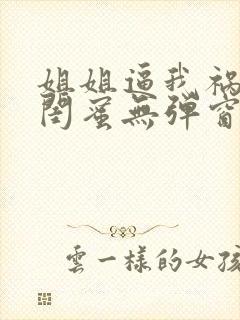 姐姐逼我祸
闺蜜無弹窗
雲一樣的女孩